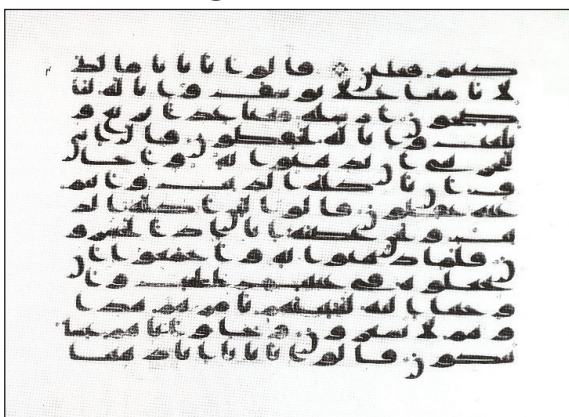 كنتم فعلين قالوا يابانا ما لك
لا تامنا علا يوسف وانا له لنا
صحون ارسله معنا غدا يرتع و
يلعب وانا له لحفظون قال اني
ليحزنني ان تذهبوا به واخا
ف ان ياكله الذيب وانتم
عنه غفلون قالوا لين اكله الذ
يب ونحن عصبه انا اذا لخسرو
ن فلما ذهبوا به واجمعوا ان
يجعلوه في غيبت الجب وا
وحينا اليه لتنبينهم بامرهم هذا
وهم لا يشعرون وجاو اباهم عشا
يبكون قالوا يابانا انا ذهبنا